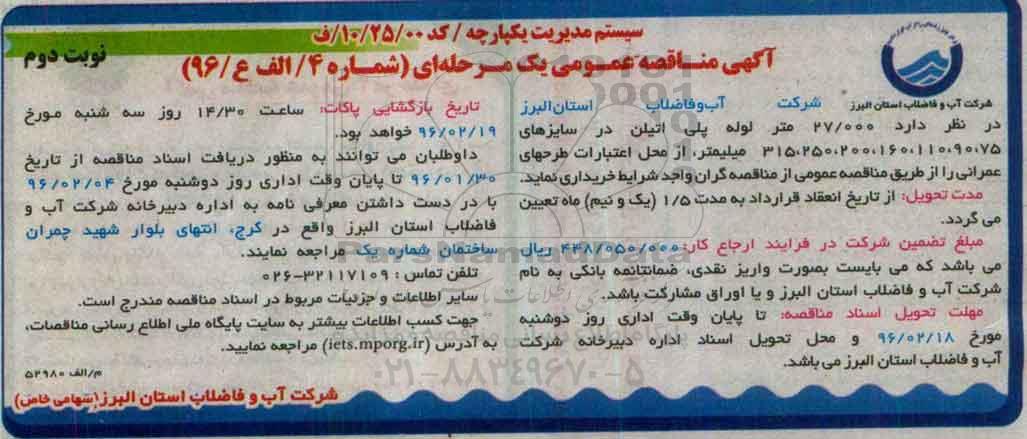 سیستم مدیریت یکپارچه / کد ۱۰/۲۵/۰۰/ف
آگهی مناقصه عمومی یک مرحله‌ای (شماره ۴/ الف ع/۹۶)
نوبت دوم
شرکت آب و فاضلاب استان البرز
شرکت آب‌وفاضلاب استان‌البرز
در نظر دارد ۲۷/۰۰۰ متر لوله پلی اتیلن در سایزهای
۳۱۵،۲۵۰،۲۰۰،۱۶۰،۱۱۰،۹۰،۷۵ میلیمتر، از محل اعتبارات طرحهای
عمرانی را از طریق مناقصه عمومی از مناقصه گران واجد شرایط خریداری نماید.
مدت تحویل: از تاریخ انعقاد قرارداد به مدت ۱/۵ (یک و نیم) ماه تعیین
می گردد.
مبلغ تضمین شرکت در فرایند ارجاع کار: ۴۴۸/۰۵۰/۰۰۰ ریال
می باشد که می بایست بصورت واریز نقدی، ضمانتنامه بانکی به نام
شرکت آب و فاضلاب استان البرز و یا اوراق مشارکت باشد.
مهلت تحویل اسناد مناقصه: تا پایان وقت اداری روز دوشنبه
مورخ ۹۶/۰۲/۱۸ و محل تحویل اسناد اداره دبیرخانه شرکت
آب و فاضلاب استان البرز می باشد.
تاریخ بازگشایی پاکات: ساعت ۱۴/۳۰ روز سه شنبه مورخ
۹۶/۰۲/۱۹ خواهد بود.
داوطلبان می توانند به منظور دریافت اسناد مناقصه از تاریخ
۹۶/۰۱/۳۰ تا پایان وقت اداری روز دوشنبه مورخ ۹۶/۰۲/۰۴
با در دست داشتن معرفی نامه به اداره دبیرخانه شرکت آب و
فاضلاب استان البرز واقع در کرج، انتهای بلوار شهید چمران
ساختمان شماره یک مراجعه نمایند.
تلفن تماس : ۳۲۱۱۷۱۰۹-۰۲۶
سایر اطلاعات و جزئیات مربوط در اسناد مناقصه مندرج است.
جهت کسب اطلاعات بیشتر به سایت پایگاه ملی اطلاع رسانی مناقصات،
به آدرس (iets.mporg.ir) مراجعه نمایید.
م/الف ۵۲۹۸۰
شرکت آب و فاضلاب استان البرز (سهامی خاص)
ParsNamadData
۰۲۱-۸۸۳۴۹۶۷۰-۵